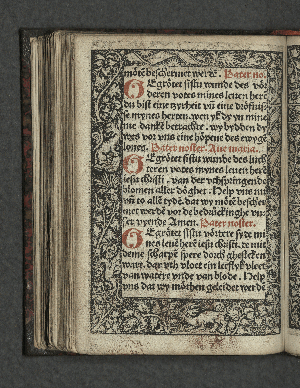 mótē beschermet werdē. Pater no.
GEgrótet sistu wunde des vör
deren votes mines leuen herē
du bist eine zyrheit vñ eine
mynes herten. wen yk dy yn mine
me danke betrachte. wy bydden dy
wes vor vns eine höpene des ewygē
lones. Pater noster. Aue maria.
GEgrótet sistu wunde des luch
teren votes mynes leuen herē
iesu christi. van der vthspringende
blomen aller dóghet. Help vns nu
vñ to allē tydē. dat wy mótē bescher
met werdē vor de bedruckinghe vn
ser vyende Amen. Pater noster.
GEgrótet sistu vórdere syde mi
nes leuē herē iesu christi. de mit
deme scharpē spere dorch ghesteken
wart. dar vth vloet ein leeflyk vleet
van watere vnde van blode. Help
vns dat wy móthen geleidet werdē